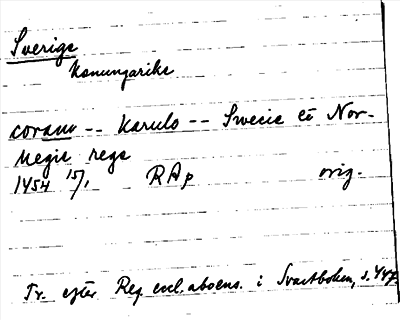 Sverige
Konungarike
coram -- Karulo -- Swecie et Nor-
uegie rege
1454 15/1 RAp orig.
Tr. efter Reg. eccl. aboens. i Svartboken, s. 447.